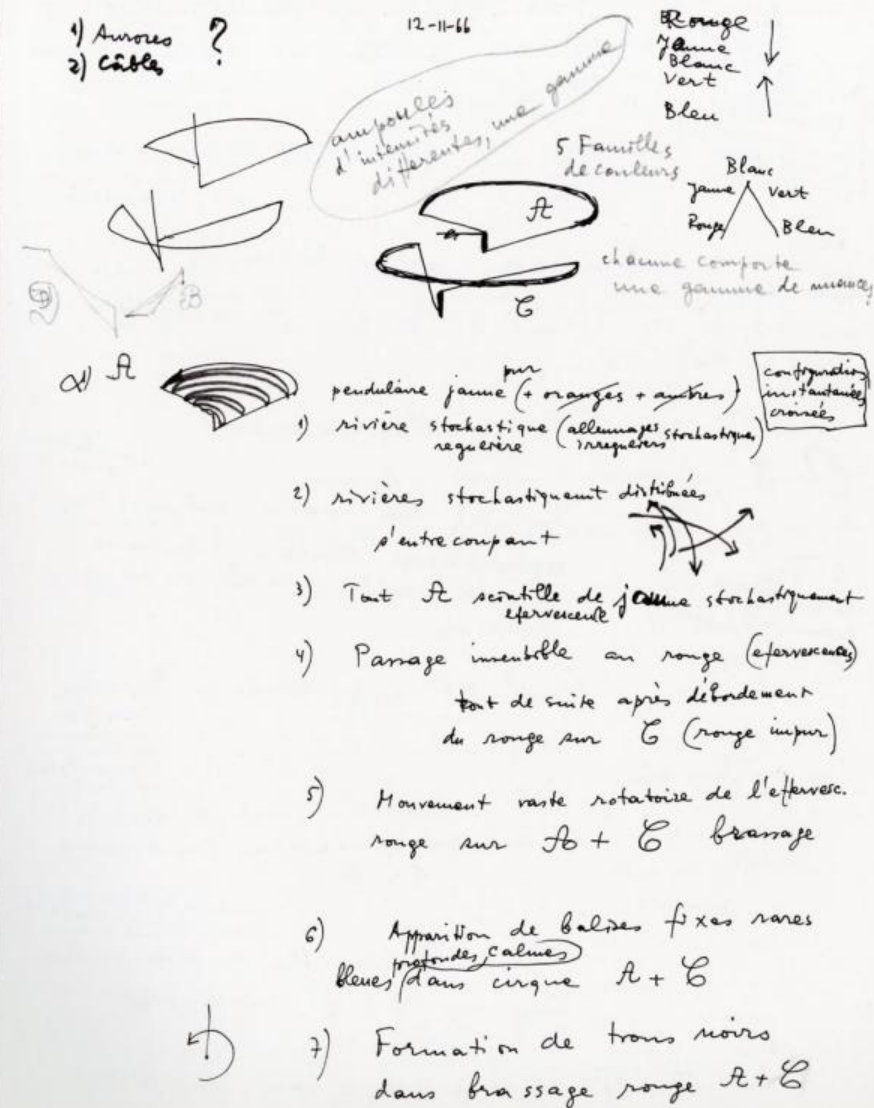 1) Aurores ?
2) Câbles
12-11-66
Rouge
Jaune
Blanc
Vert
Bleu
ampoules
d'intensités
differentes, une gamme
5 Familles
de couleurs
Blanc
Jaune Vert
Rouge Bleu
A
C
chacune comporte
une gamme de nuances
B
α) A
pur
pendulaire jaune (+ oranges + ambres)
configurations
instantanées
croisées
1) rivière stochastique (allumages stochastiques)
reguière irreguiers
2) rivières stochastiquemt distribuées
s'entrecoupant
3) Tout A scintille de jaune stochastiquement
efervescente
4) Passage insensible au rouge (efervescences)
tout de suite après débordement
du rouge sur C (rouge impur)
5) Mouvement vaste rotatoire de l'effervesc.
rouge sur A + C brassage
6) Apparition de balises fixes rares
profondes, calmes
bleues dans cirque A + C
7) Formation de trous noirs
dans brassage rouge A + C